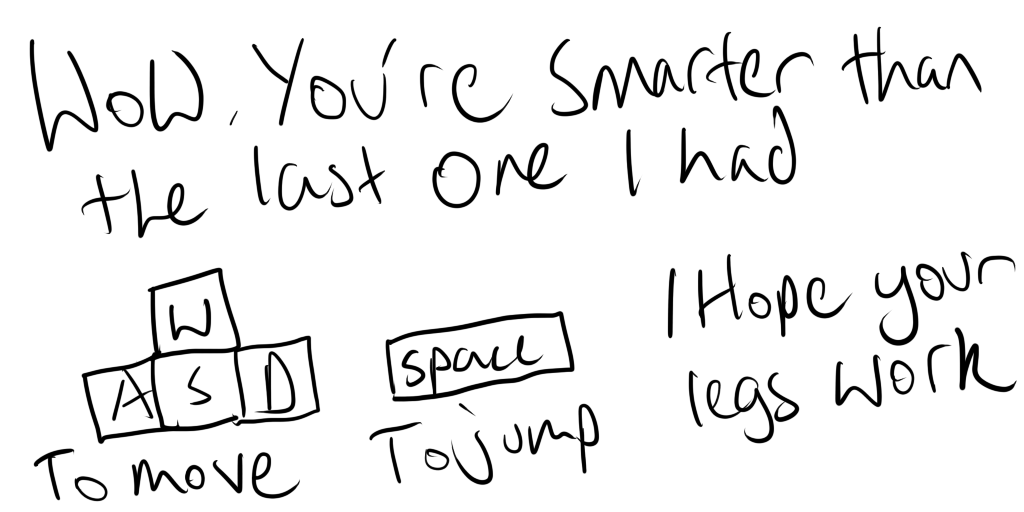 WoW. You're Smarter than
the last one I had
W
A S D
To move
space
To jump
I Hope your
legs work